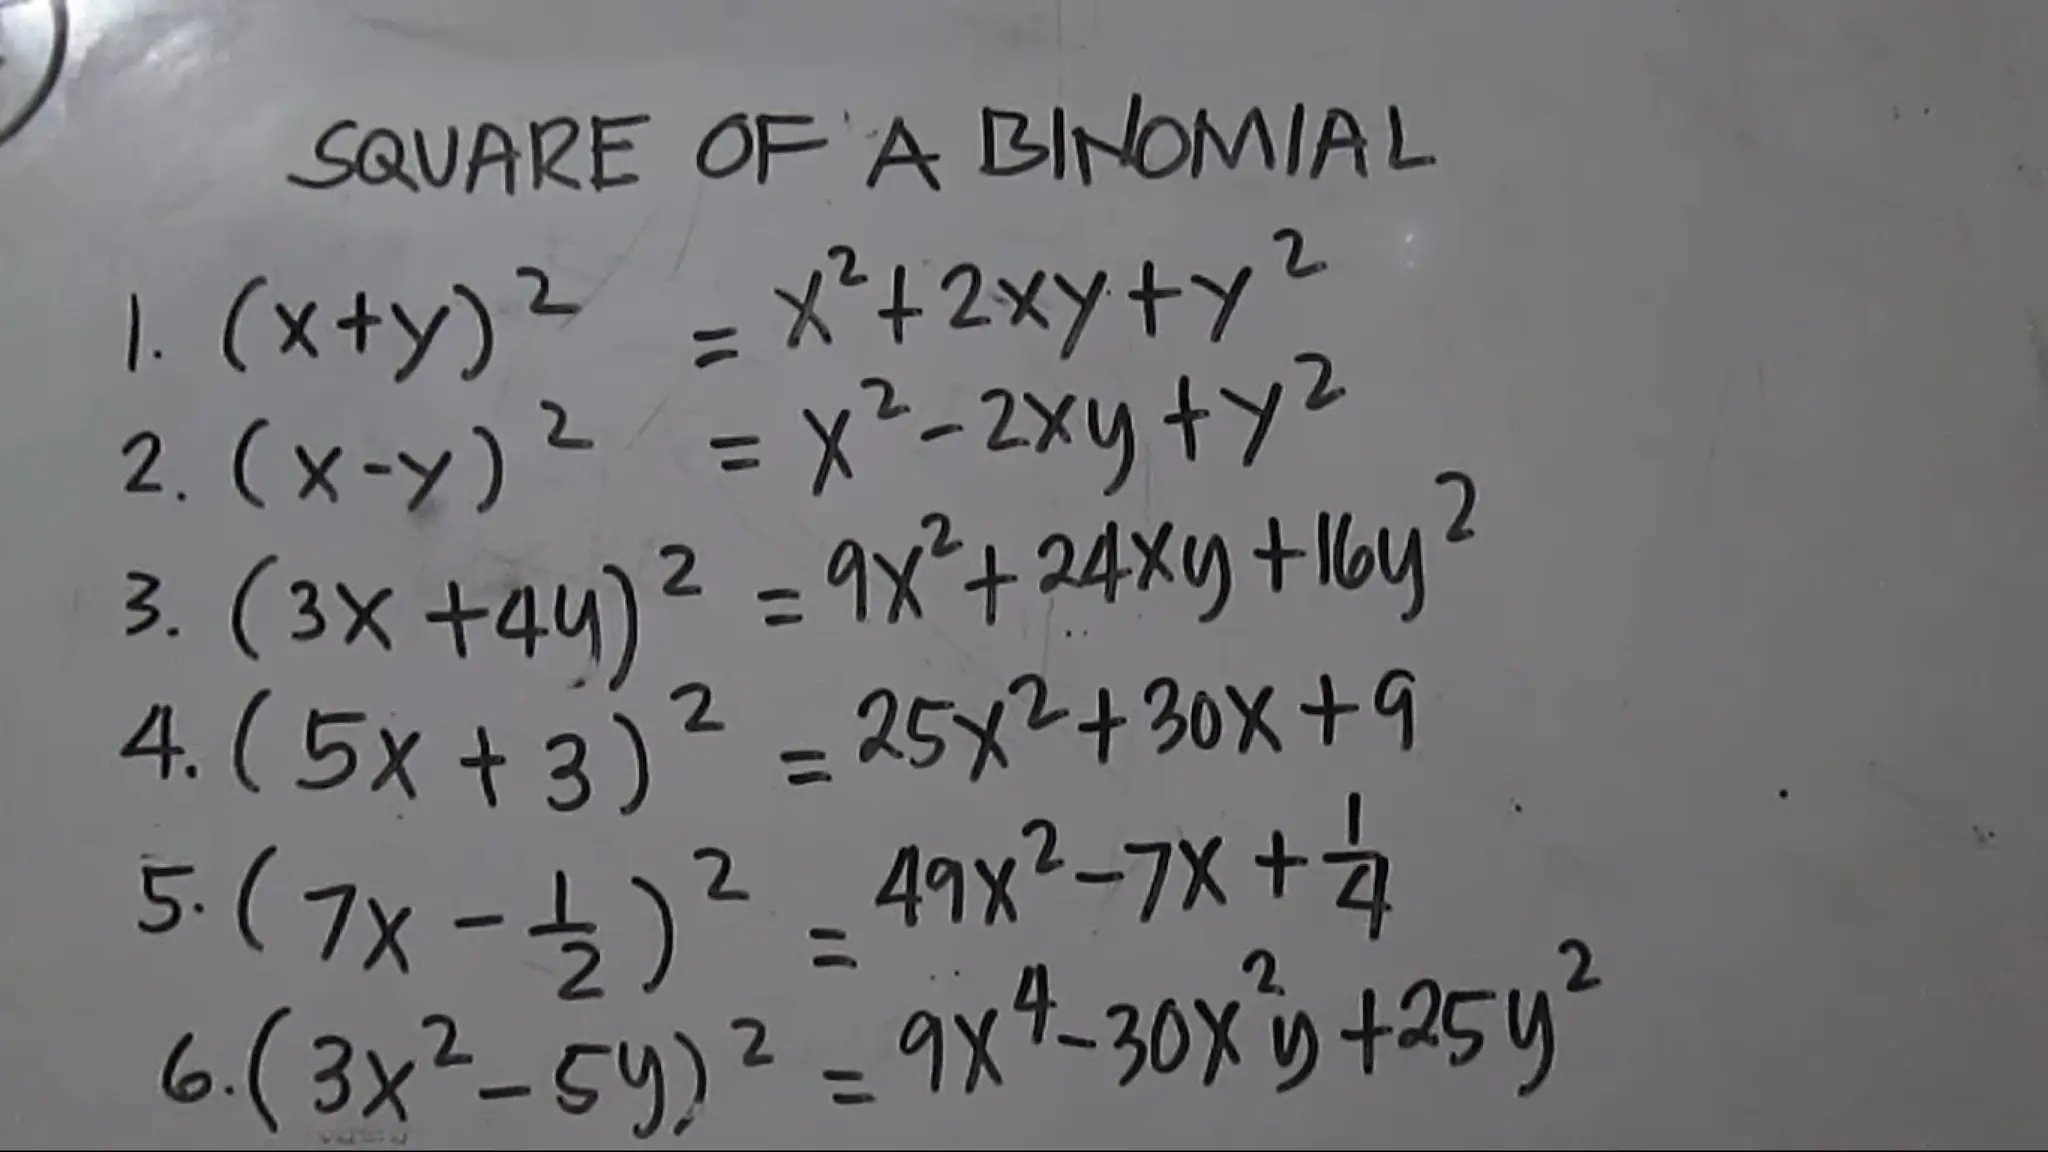 SQUARE OF A BINOMIAL
1. (x+y)² = x²+2xy+y²
2. (x-y)² = x²-2xy+y²
3. (3x+4y)² = 9x²+24xy+16y²
4. (5x+3)² = 25x²+30x+9
5. (7x-1/2)² = 49x²-7x+1/4
6. (3x²-5y)² = 9x⁴-30x²y+25y²